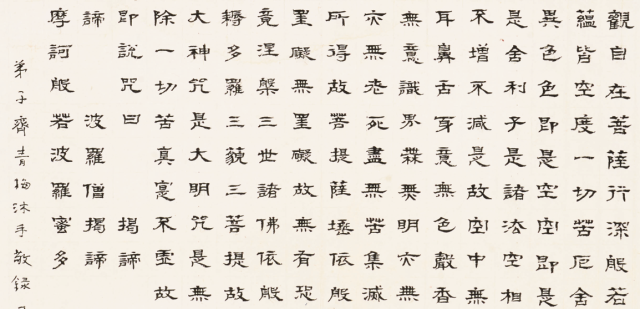 觀自在菩薩行深般若
蘊皆空度一切苦厄舍
異色色即是空空即是
是舍利子是諸法空相
不增不減是故空中無
耳鼻舌身意無色聲香
無意識界無無明亦無
亦無老死盡無苦集滅
所得故菩提薩埵依般
罣礙無罣礙故無有恐
竟涅槃三世諸佛依般
耨多羅三藐三菩提故
大神咒是大明咒是無
除一切苦真實不虛故
即說咒曰 揭諦
諦 波羅僧揭諦
摩訶般若波羅蜜多
弟子齊青梅沐手敬録